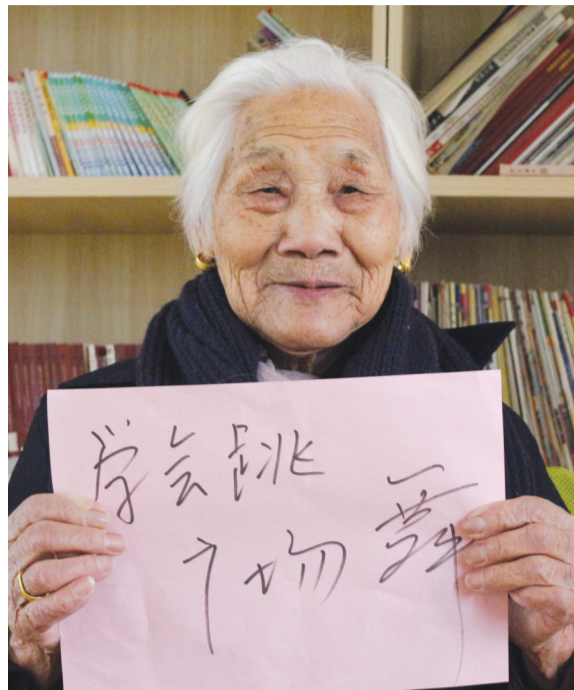 学会跳
广场舞